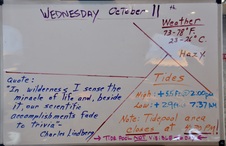 WEDNESDAY OCTOBER 11th
Weather
73-78°F
23-26°C
Hazy
Tides
High: +5.5Ft @ 2:00pm
Low: +2.9Ft - 7:37 AM
Note: Tidepool area
closes at
TIDE POOL NOT VISIBLE
Quote:
"In wilderness I sense the
miracle of life and, beside
it, our scientific
accomplishments fade
to trivia"-
Charles Lindberg